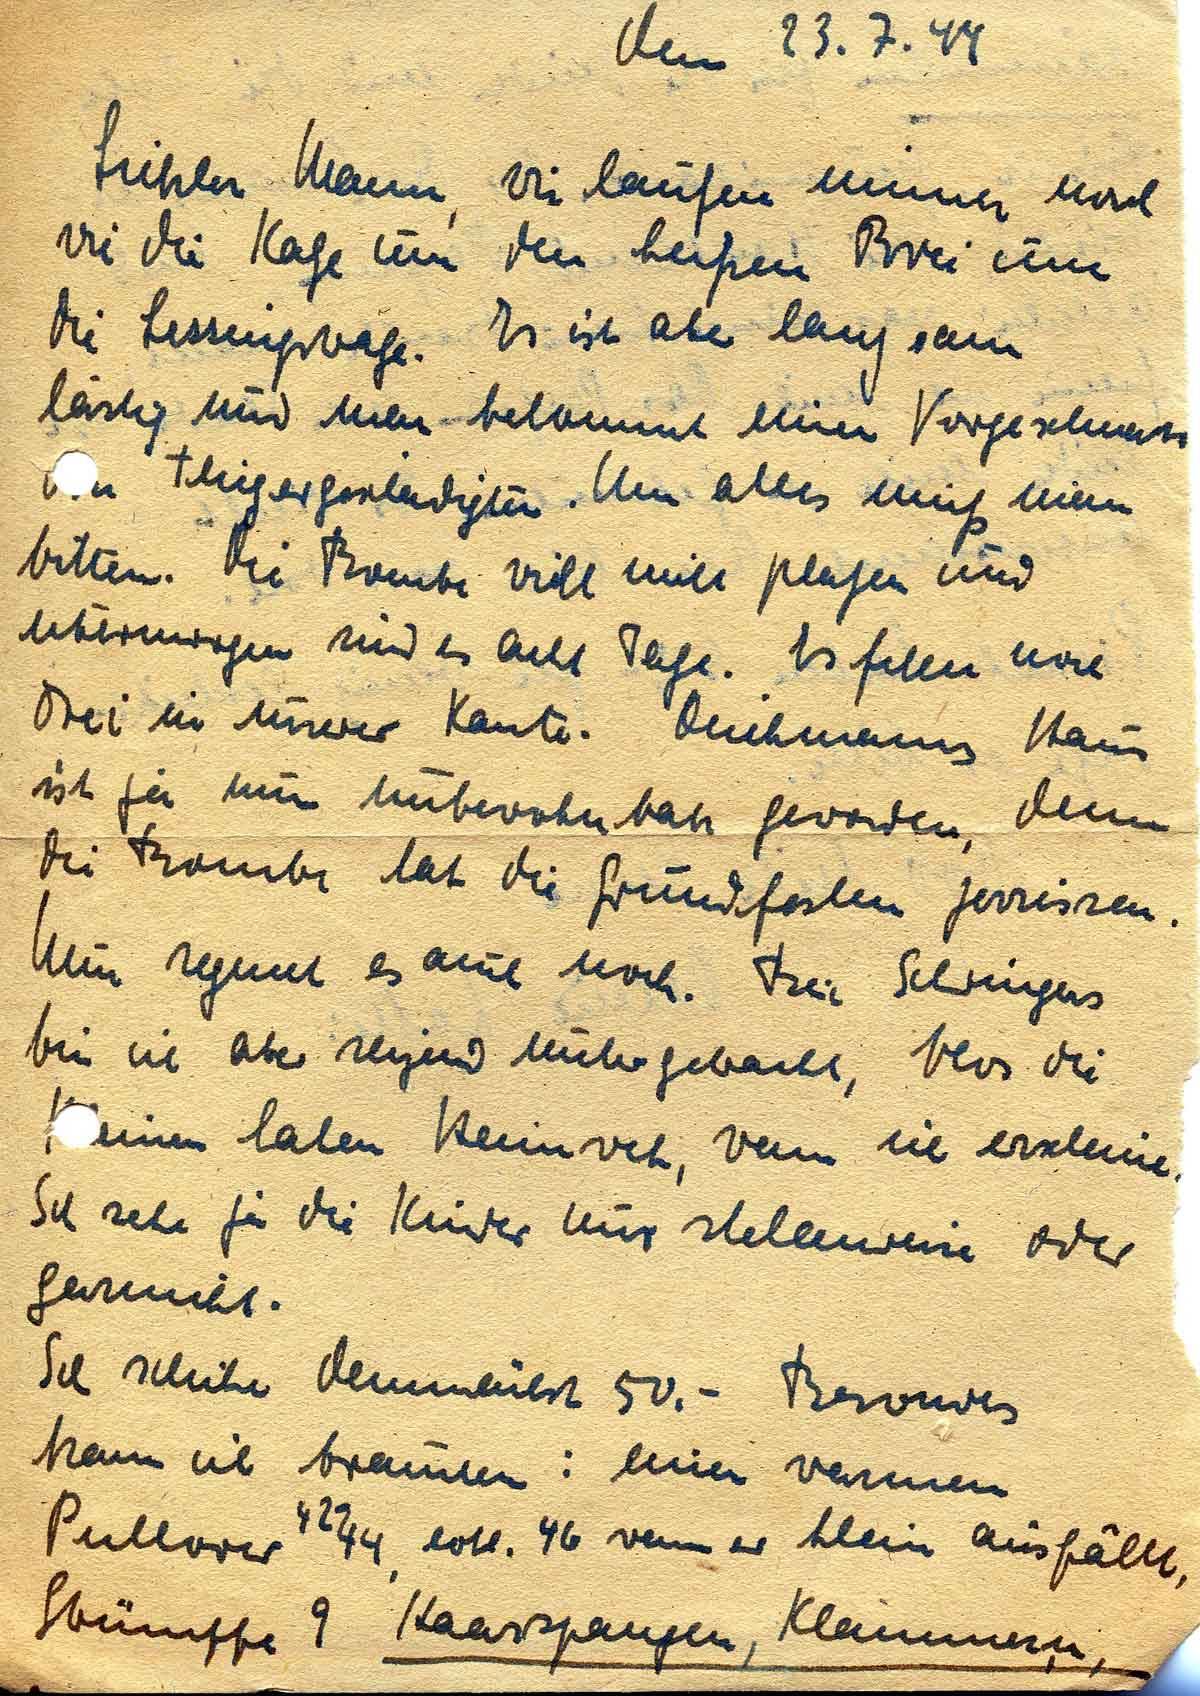 den 23.7.44
Liebster Mann, wir laufen immer noch
wie die Katze um den heißen Brei um
die Lessingstraße. Es ist aber langsam
lästig und man bekommt einen Vorgeschmack
von Fliegergeschädigten. Um alles muß man
bitten. Die Bombe will nicht platzen und
übermorgen sind es acht Tage. Es fielen noch
drei in unserer Kante. Deichmanns Haus
ist ja nun unbewohnbar geworden, denn
die Bombe hat die Grundfesten zerrissen.
Nun regnet es auch noch. Bei Schwingers
bin ich aber reizend untergebracht, blos die
Kleinen haben Heimweh, wenn ich erscheine.
Ich sehe ja die Kinder nur stellenweise oder
garnicht.
Ich schicke demnächst 50.- Besonders
kann ich brauchen: einen warmen
Pullover 42 44, evtl. 46 wenn er klein ausfällt,
Strümpfe 9 Haarspangen, Klammern,